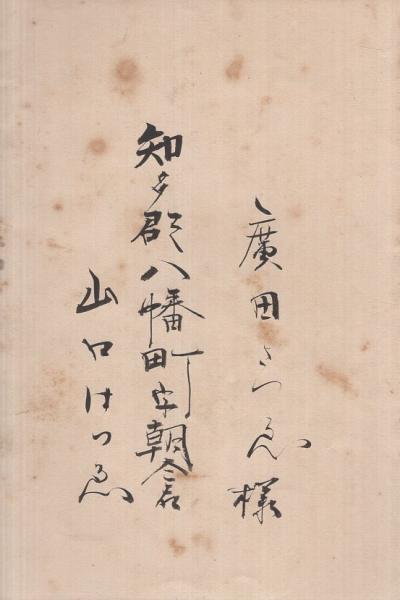 廣田さつゑ様
知多郡八幡町字朝倉
山口はつゑ